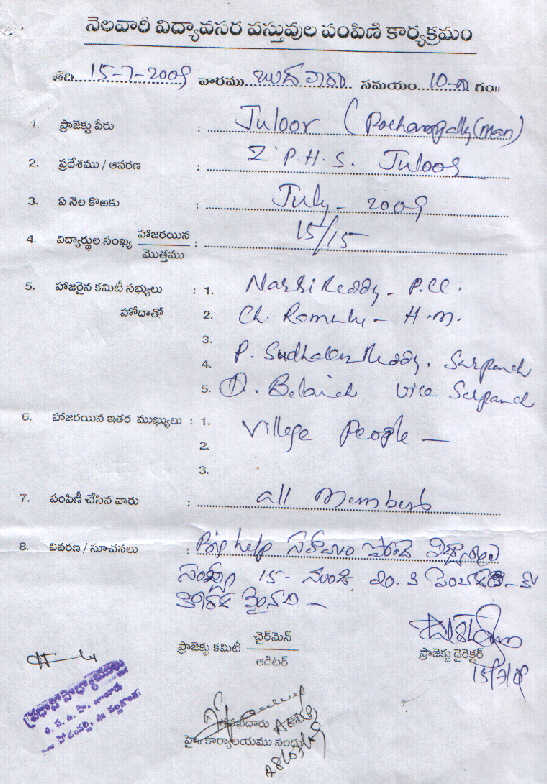 నెలవారీ విద్యావసర వస్తువుల పంపిణి కార్యక్రమం
తేది 15-7-2009 వారము బుధవారం సమయం 10-00 గం॥
1. ప్రాజెక్టు పేరు : Juloor (Pochampally (Man)
2. ప్రదేశము / ఆవరణ : Z.P.H.S. Juloor
3. ఏ నెల కొఱకు : July - 2009
4. విద్యార్థుల సంఖ్య హాజరయిన / మొత్తము : 15/15
5. హాజరైన కమిటీ సభ్యులు : 1. Narsi Reddy - P.CC.
హోదాతో 2. Ch. Ramulu - H.M.
3.
4. P. Sudhaker Reddy. Surpanch
5. D. Balaiah Vice Surpanch
6. హాజరయిన ఇతర ముఖ్యులు : 1. Village People -
2.
3.
7. పంపిణీ చేసిన వారు : all Members
8. వివరణ / సూచనలు : help సహాయం పొందే
15 - నుండి 20 కి
ప్రాజెక్టు కమిటీ చైర్‌మెన్ / ఆడిటర్
ప్రాజెక్టు డైరెక్టర్
15/7/09